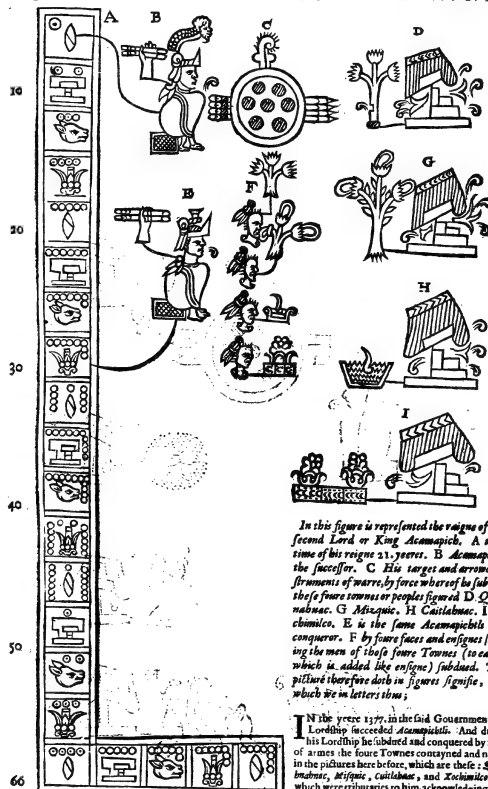 A B C D
10
G
20 E F
H
30
I
40
50
66
In this figure is repreſented the raigne of
ſecond Lord or King Acamapich. A
time of his reigne 21. yeeres. B
the ſucceſſor. C His target and
ſtruments of warre, by force whereof he
theſe foure townes or peoples figured D
nahuac. G Mizquic. H Caitlahuac. I
chimilco. E is the ſame Acamapichtli
conqueror. F by foure faces and enſignes
ing the men of thoſe foure Townes (to
which is added like enſigne) ſubdued.
picture therefore doth in figures ſignifie,
which we in letters thus;
IN the yeere 1377. in the ſaid Gouernment
Lordſhip ſucceeded Acamapichtli. And
his Lordſhip he ſubdued and conquered by
of armes the foure Townes contayned and
in the pictures here before, which are theſe :
Miſquic, Cuitlahuac, and Xochimilco
which were tributaries to him acknowledging